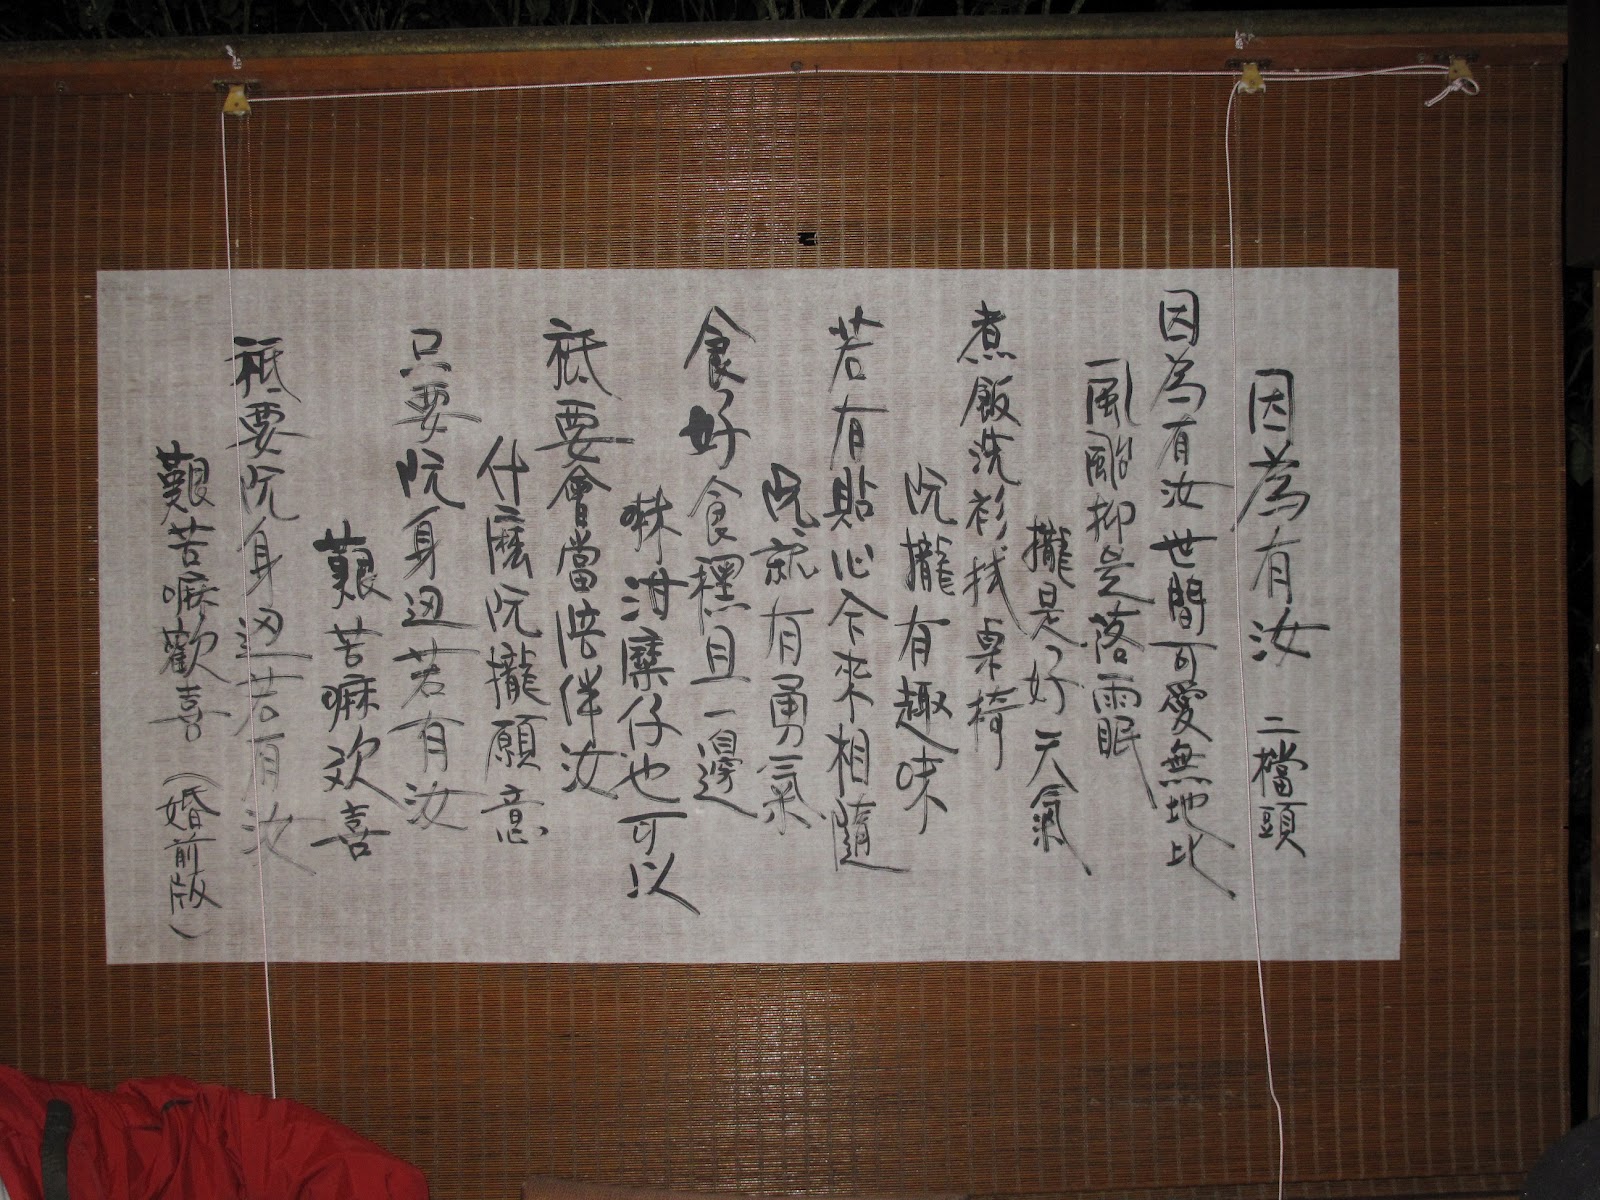 因為有汝 二檔頭
因為有汝世間可愛無地比
風颱抑是落雨眠
攏是好天氣
煮飯洗衫找桌椅
阮攏有趣味
若有貼心今來相隨
阮就有勇氣
食好食穤且一邊
啉泔糜仔也可以
祗要會當陪伴汝
什麼阮攏願意
只要阮身边若有汝
艱苦嘛欢喜
祗要阮身边若有汝
艱苦嘛歡喜 (婚前版)